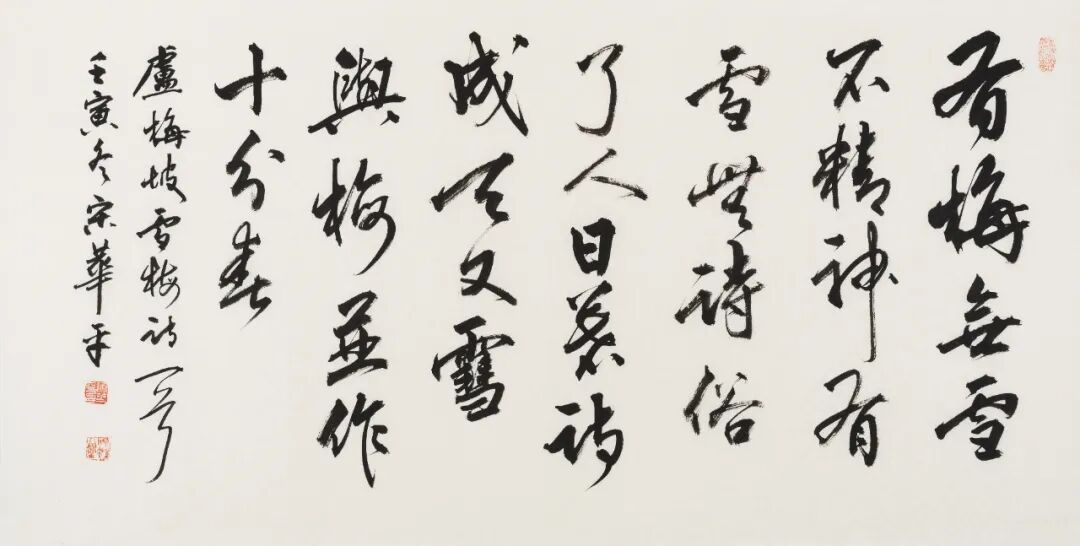 有梅無雪
不精神有
雪無詩俗
了人日暮詩
成天又雪
與梅並作
十分春
盧梅坡雪梅詩一首
壬寅冬宋華平